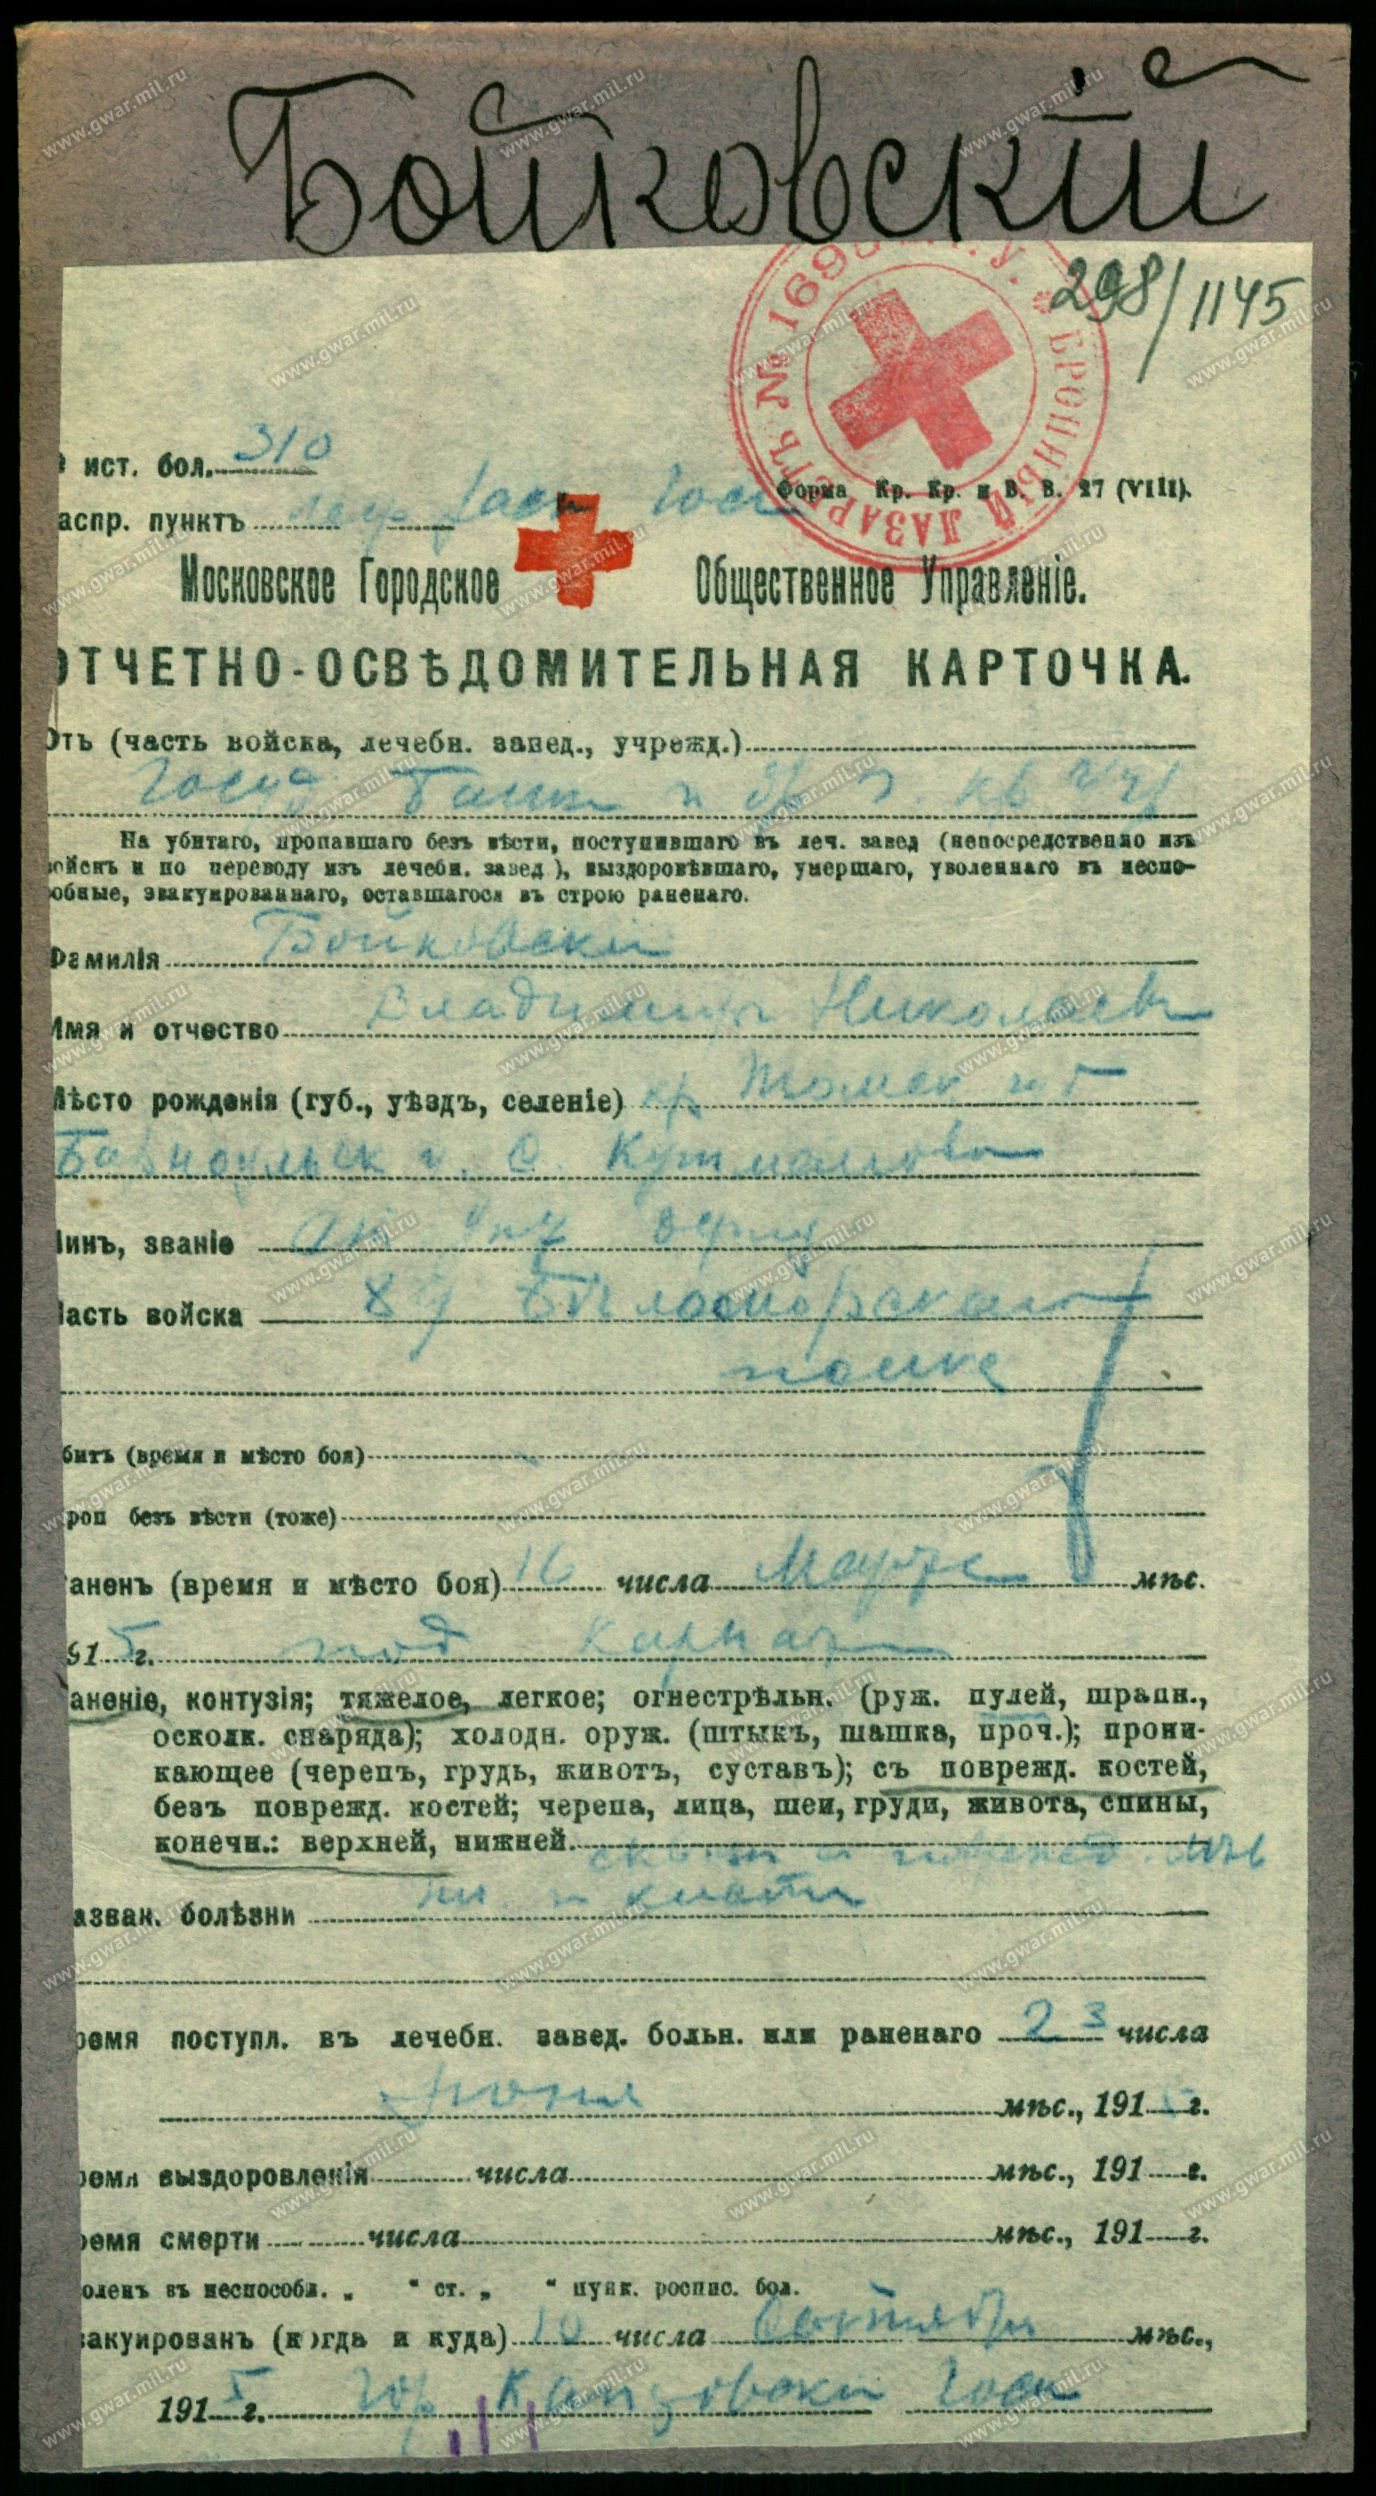 Бойковскій
298/1145
№ 169 БРОННЫЙ ЛАЗАРЕТЪ
ист. бол. 310
Форма Кр. Кр. и В. В. 27 (VIII).
аспр. пунктъ
Московское Городское Общественное Управленіе.
ОТЧЕТНО-ОСВѢДОМИТЕЛЬНАЯ КАРТОЧКА.
Отъ (часть войска, лечебн. завед., учрежд.)
Госуд Банк и
На убитаго, пропавшаго безъ вѣсти, поступившаго въ леч. завед (непосредственно изъ
войскъ и по переводу изъ лечебн. завед.), выздоровѣвшаго, умершаго, уволеннаго въ неспо-
обные, эвакуированнаго, оставшагося въ строю раненаго.
Фамилія Бойковскій
Имя и отчество Владиміръ Николаев
Мѣсто рожденія (губ., уѣздъ, селеніе) Томск
Барнаульск с.
Чинъ, званіе
Часть войска 89 Бѣломорскаго
полка
битъ (время и мѣсто боя)
роп безъ вѣсти (тоже)
аненъ (время и мѣсто боя) 16 числа Марта мѣс.
915 г. под Карпат
аненіе, контузія; тяжелое, легкое; огнестрѣльн. (руж. пулей, шрапн.,
осколк. снаряда); холодн. оруж. (штыкъ, шашка, проч.); прони-
кающее (черепъ, грудь, животъ, суставъ); съ поврежд. костей,
безъ поврежд. костей; черепа, лица, шеи, груди, живота, спины,
конечн.: верхней, нижней.
азван. болѣзни кисти
ремя поступл. въ лечебн. завед. больн. или раненаго 23 числа
Іюня мѣс., 1915 г.
ремя выздоровленія числа мѣс., 191 г.
ремя смерти числа мѣс., 191 г.
оленъ въ неспособл. „ “ ст. „ “ пунк. роспис. бол.
вакуированъ (когда и куда) 10 числа Сентября мѣс.,
1915 г. Гор Госп